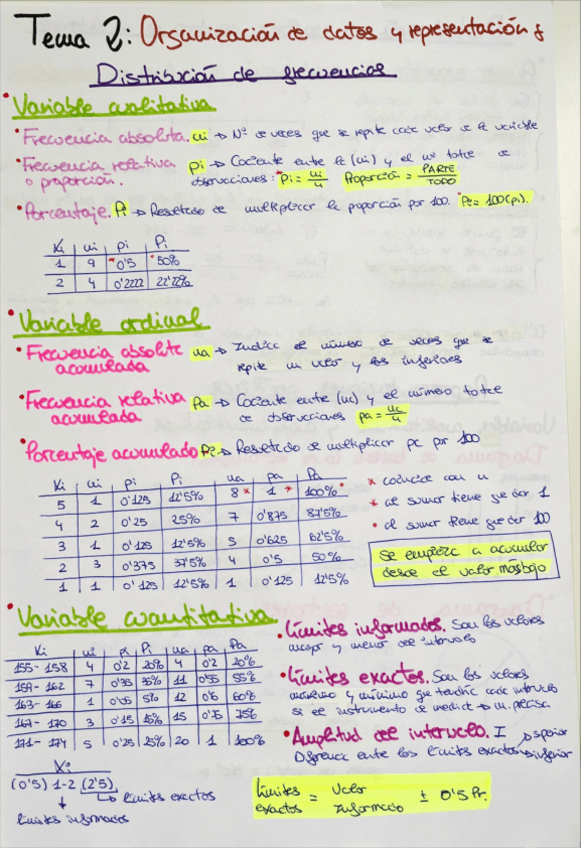 Tema 2: Organización de datos y representación g
Distribución de frecuencias
• Variable cualitativa
• Frecuencia absoluta. ni → Nº de veces que se repite cada valor de la variable
• Frecuencia relativa o proporción. pi → Cociente entre la (ni) y el nº total de
observaciones: pi = ni/n Proporción = PARTE/TODO
• Porcentaje. Pi → Resultado de multiplicar la proporción por 100. Pi = 100(pi).
Xi ni pi Pi
1 9 0'5 50%
2 4 0'2222 22'22%
• Variable ordinal
• Frecuencia absoluta acumulada na → Indica el número de veces que se
repite un valor y los inferiores
• Frecuencia relativa acumulada Pa → Cociente entre (ni) y el número total
de observaciones pa = na/n
• Porcentaje acumulado Pi → Resultado de multiplicar pa por 100
Xi ni pi Pi na pa Pa
5 1 0'125 12'5% 8 * 1 * 100% •
4 2 0'25 25% 7 0'875 87'5%
3 1 0'125 12'5% 5 0'625 62'5%
2 3 0'375 37'5% 4 0'5 50%
1 1 0'125 12'5% 1 0'125 12'5%
* coincide con n
* al sumar tiene que dar 1
• al sumar tiene que dar 100
Se empieza a acumular
desde el valor más bajo
• Variable cuantitativa
Xi ni pi Pi na pa Pa
155-158 4 0'2 20% 4 0'2 20%
159-162 7 0'35 35% 11 0'55 55%
163-166 1 0'05 5% 12 0'6 60%
167-170 3 0'15 15% 15 0'75 75%
171-174 5 0'25 25% 20 1 100%
Xi
(0'5) 1-2 (2'5)
→ límites exactos
límites informados
• Límites informados. Son los valores
mayor y menor del intervalo
• Límites exactos. Son los valores
máximo y mínimo que tendría cada intervalo
si el instrumento de medida → m. precisa
• Amplitud del intervalo. I superior
Diferencia entre los límites exactos inferior
Límites exactos = Valor Informado ± 0'5 Pr.